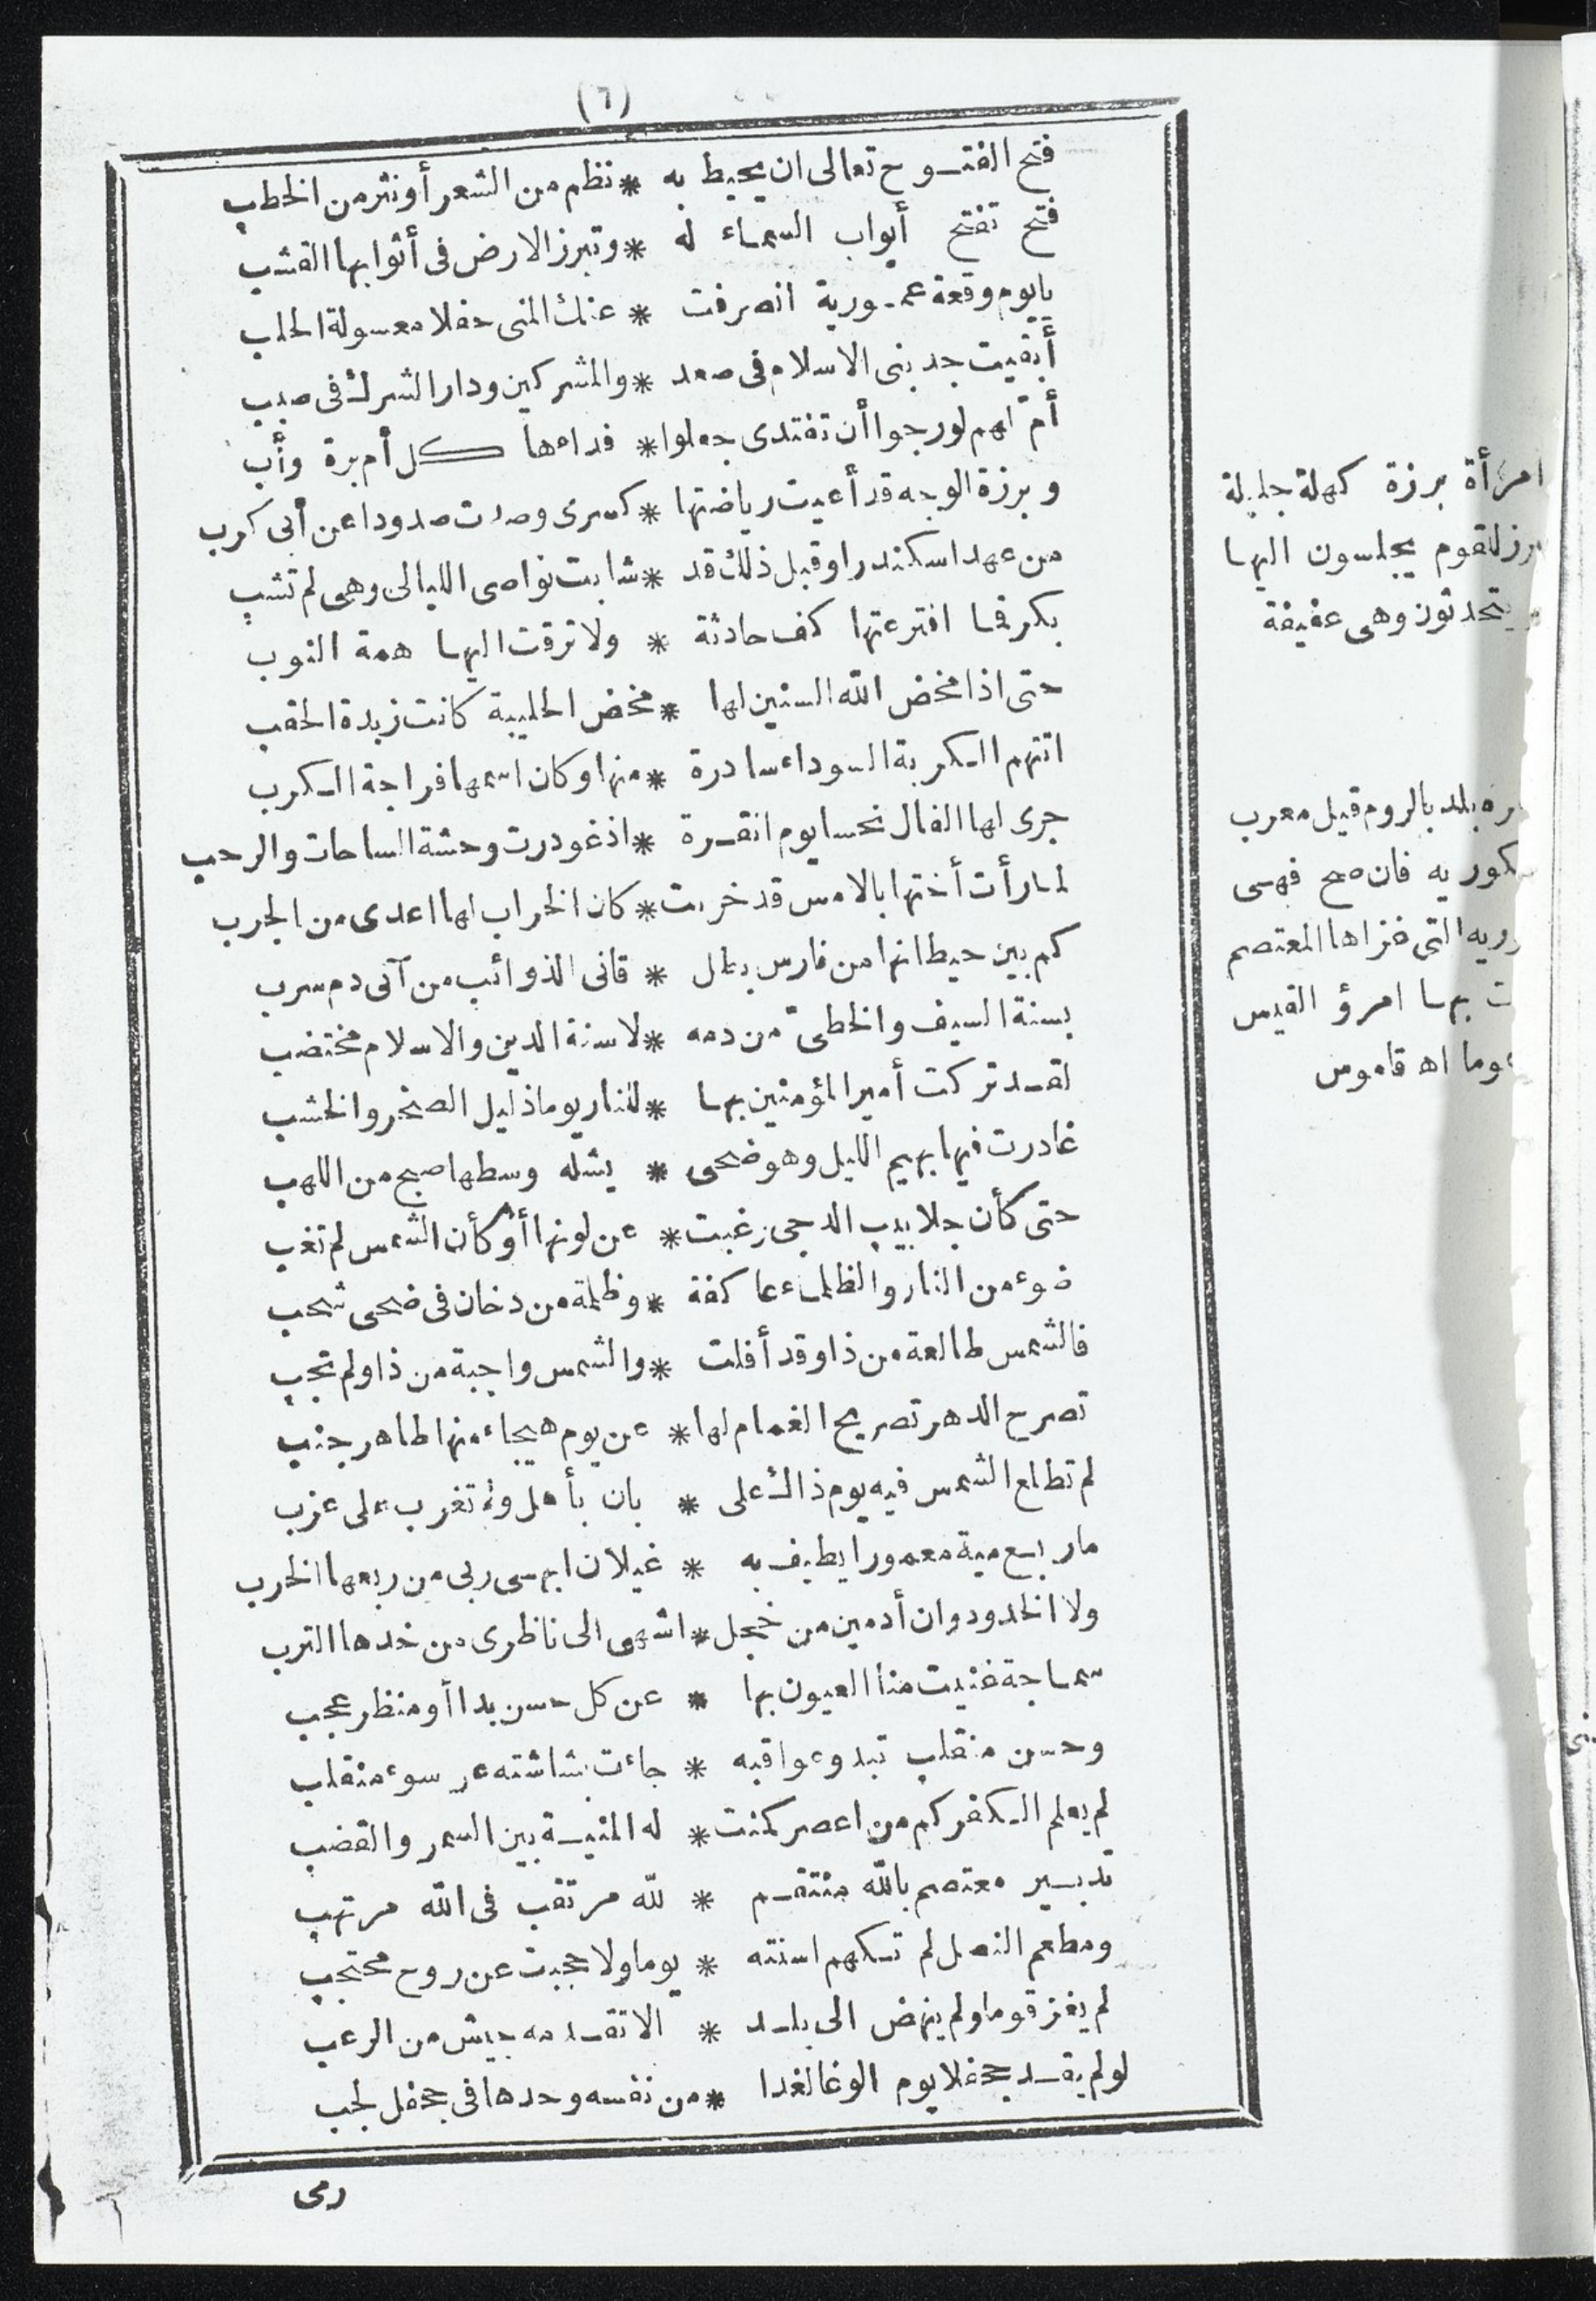 (٦)
فتح الفتوح تعالى ان يحيط به * نظم من الشعر أو نثر من الخطب
فتح تفتح أبواب السماء له * وتبرز الارض فى أثوابها القشب
يا يوم وقعة عمورية انصرفت * عنك المنى حفلا معسولة الحلب
أبقيت جد بنى الاسلام فى صعد * والمشركين ودار الشرك فى صبب
أمّ لهم لو رجوا أن تفتدى جعلوا * فداءها كل أم برة وأب
وبرزة الوجه قد أعيت رياضتها * كسرى وصدت صدودا عن أبى كرب
من عهد اسكندر او قبل ذلك قد * شابت نواصى الليالى وهى لم تشب
بكر فما افترعتها كف حادثة * ولا ترقت اليها همة النوب
حتى اذا مخض الله السنين لها * مخض الحليبة كانت زبدة الحقب
اتتهم الكربة السوداء سادرة * منها وكان اسمها فراجة الكرب
جرى لها الفال نحسا يوم انقرة * اذ غودرت وحشة الساحات والرحب
لما رأت أختها بالامس قد خربت * كان الخراب لها اعدى من الجرب
كم بين حيطانها من فارس بطل * قانى الذوائب من آنى دم سرب
بسنة السيف والخطىّ من دمه * لا سنة الدين والاسلام مختضب
لقد تركت أمير المؤمنين بها * للنار يوما ذليل الصخر والخشب
غادرت فيها بهيم الليل وهو ضحى * يشله وسطها صبح من اللهب
حتى كأن جلابيب الدجى رغبت * عن لونها أو كأن الشمس لم تغب
ضوء من النار والظلماء عاكفة * وظلمة من دخان فى ضحى شحب
فالشمس طالعة من ذا وقد أفلت * والشمس واجبة من ذا ولم تجب
تصرح الدهر تصريح الغمام لها * عن يوم هيجاء منها طاهر جنب
لم تطلع الشمس فيه يوم ذاك على * بان بأهل ولم تغرب على عزب
ما ربع مية معمورا يطيف به * غيلان ابهى ربى من ربعها الخرب
ولا الخدود وان أدمين من خجل * اشهى الى ناظرى من خدها الترب
سماجة غنيت منا العيون بها * عن كل حسن بدا أو منظر عجب
وحسن منقلب تبدو عواقبه * جاءت بشاشته عن سوء منقلب
لم يعلم الكفر كم من اعصر كمنت * له المنية بين السمر والقضب
تدبير معتصم بالله منتقم * لله مرتقب فى الله مرتهب
ومطعم النصل لم تكهم اسنته * يوما ولا حجبت عن روح محتجب
لم يغز قوما ولم ينهض الى بلد * الا تقدمه جيش من الرعب
لو لم يقد جحفلا يوم الوغا لغدا * من نفسه وحدها فى جحفل لجب
رمى
امرأة برزة كهلة جليلة
للقوم يجلسون اليها
يتحدثون وهى عفيفة
بلد بالروم قيل معرب
فان صح فهى
التى غزاها المعتصم
بها امرؤ القيس
اه قاموس